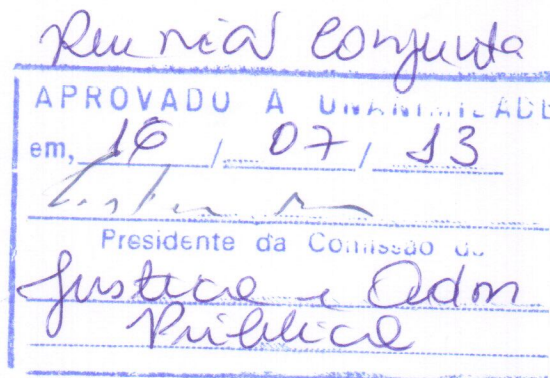 Reunião Conjunta
APROVADO A UNANIMIDADE
em, 16 / 07 / 13
Presidente da Comissão de
Justiça e Adm
Pública